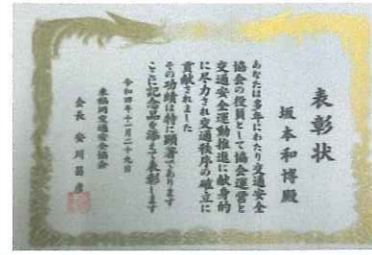 表彰状
坂本和博殿
あなたは多年にわたり交通安全
協会の役員として協会運営と
交通安全運動推進に献身的
に尽力され交通秩序の確立に
貢献されました
その功績は特に顕著であります
ここに記念品を添えて表彰します
令和四年十一月二十九日
交通安全協会
会長 安川